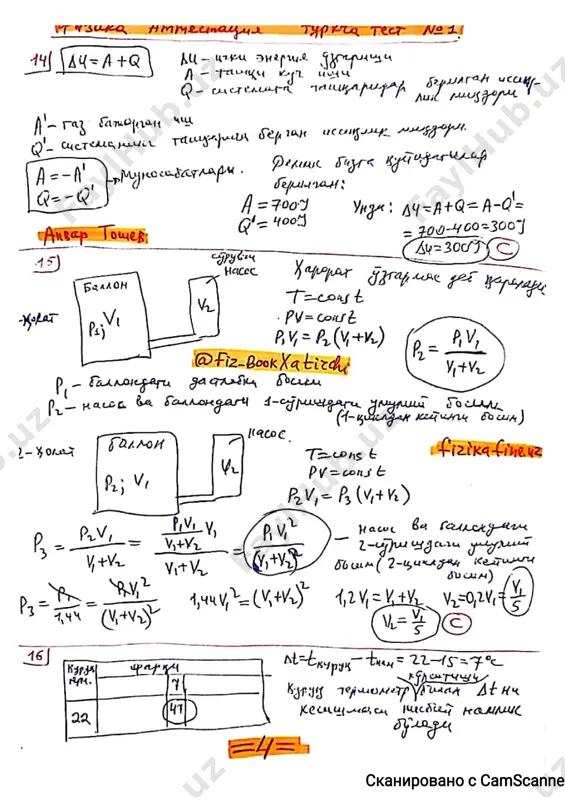 Физика Аттестация Туркча тест №1
14) ΔU = A + Q
ΔU – ички энергия ўзгариши
A – ташқи куч иши
Q – системага ташқаридан берилган иссиқлик миқдори
A' – газ бажарган иш
Q' – системанинг ташқарига берган иссиқлик миқдори.
A = -A'
Q = -Q'
Муносабатлари.
берилган:
A = 700J
Q' = 400J
Унда: ΔU = A + Q = A - Q' =
= 700 - 400 = 300J
ΔU = 300J C
Анвар Тошев
15)
Баллон
P₁; V₁
сўрувчи насос
V₂
-ҳолат
Ҳарорат ўзгармас деб қаралади
T = const
PV = const
P₁V₁ = P₂(V₁+V₂)
P₂ = P₁V₁ / (V₁+V₂)
@fiz_BookXatirchi
P₁ – баллондаги дастлабки босим
P₂ – насос ва баллондаги 1-сўришдаги умумий босим
(1-циклдан кейинги босим)
fizikafine.uz
2-ҳолат
баллон
P₂; V₁
насос.
V₂
T = const
PV = const
P₂V₁ = P₃(V₁+V₂)
P₃ = P₂V₁ / (V₁+V₂) = (P₁V₁ / (V₁+V₂)) V₁ / (V₁+V₂) = P₁V₁² / (V₁+V₂)²
– насос ва баллондаги
2-сўришдаги умумий
босим (2-циклдан кейинги
босим)
P₃ = P₁ / 1,44 = P₁V₁² / (V₁+V₂)²
1,44V₁² = (V₁+V₂)²
1,2V₁ = V₁+V₂
V₂ = 0,2V₁ = V₁/5
V₂ = V₁/5 C
16)
қуруқ
фарқи
7
22
47
Δt = t қуруқ – t нам = 22 – 15 = 7°C
кўрсатиши
қуруқ термометр билан Δt ни
кесишмаси нисбий намлик
бўлади
=4=
Сканировано с CamScanne
FaylHub.uz